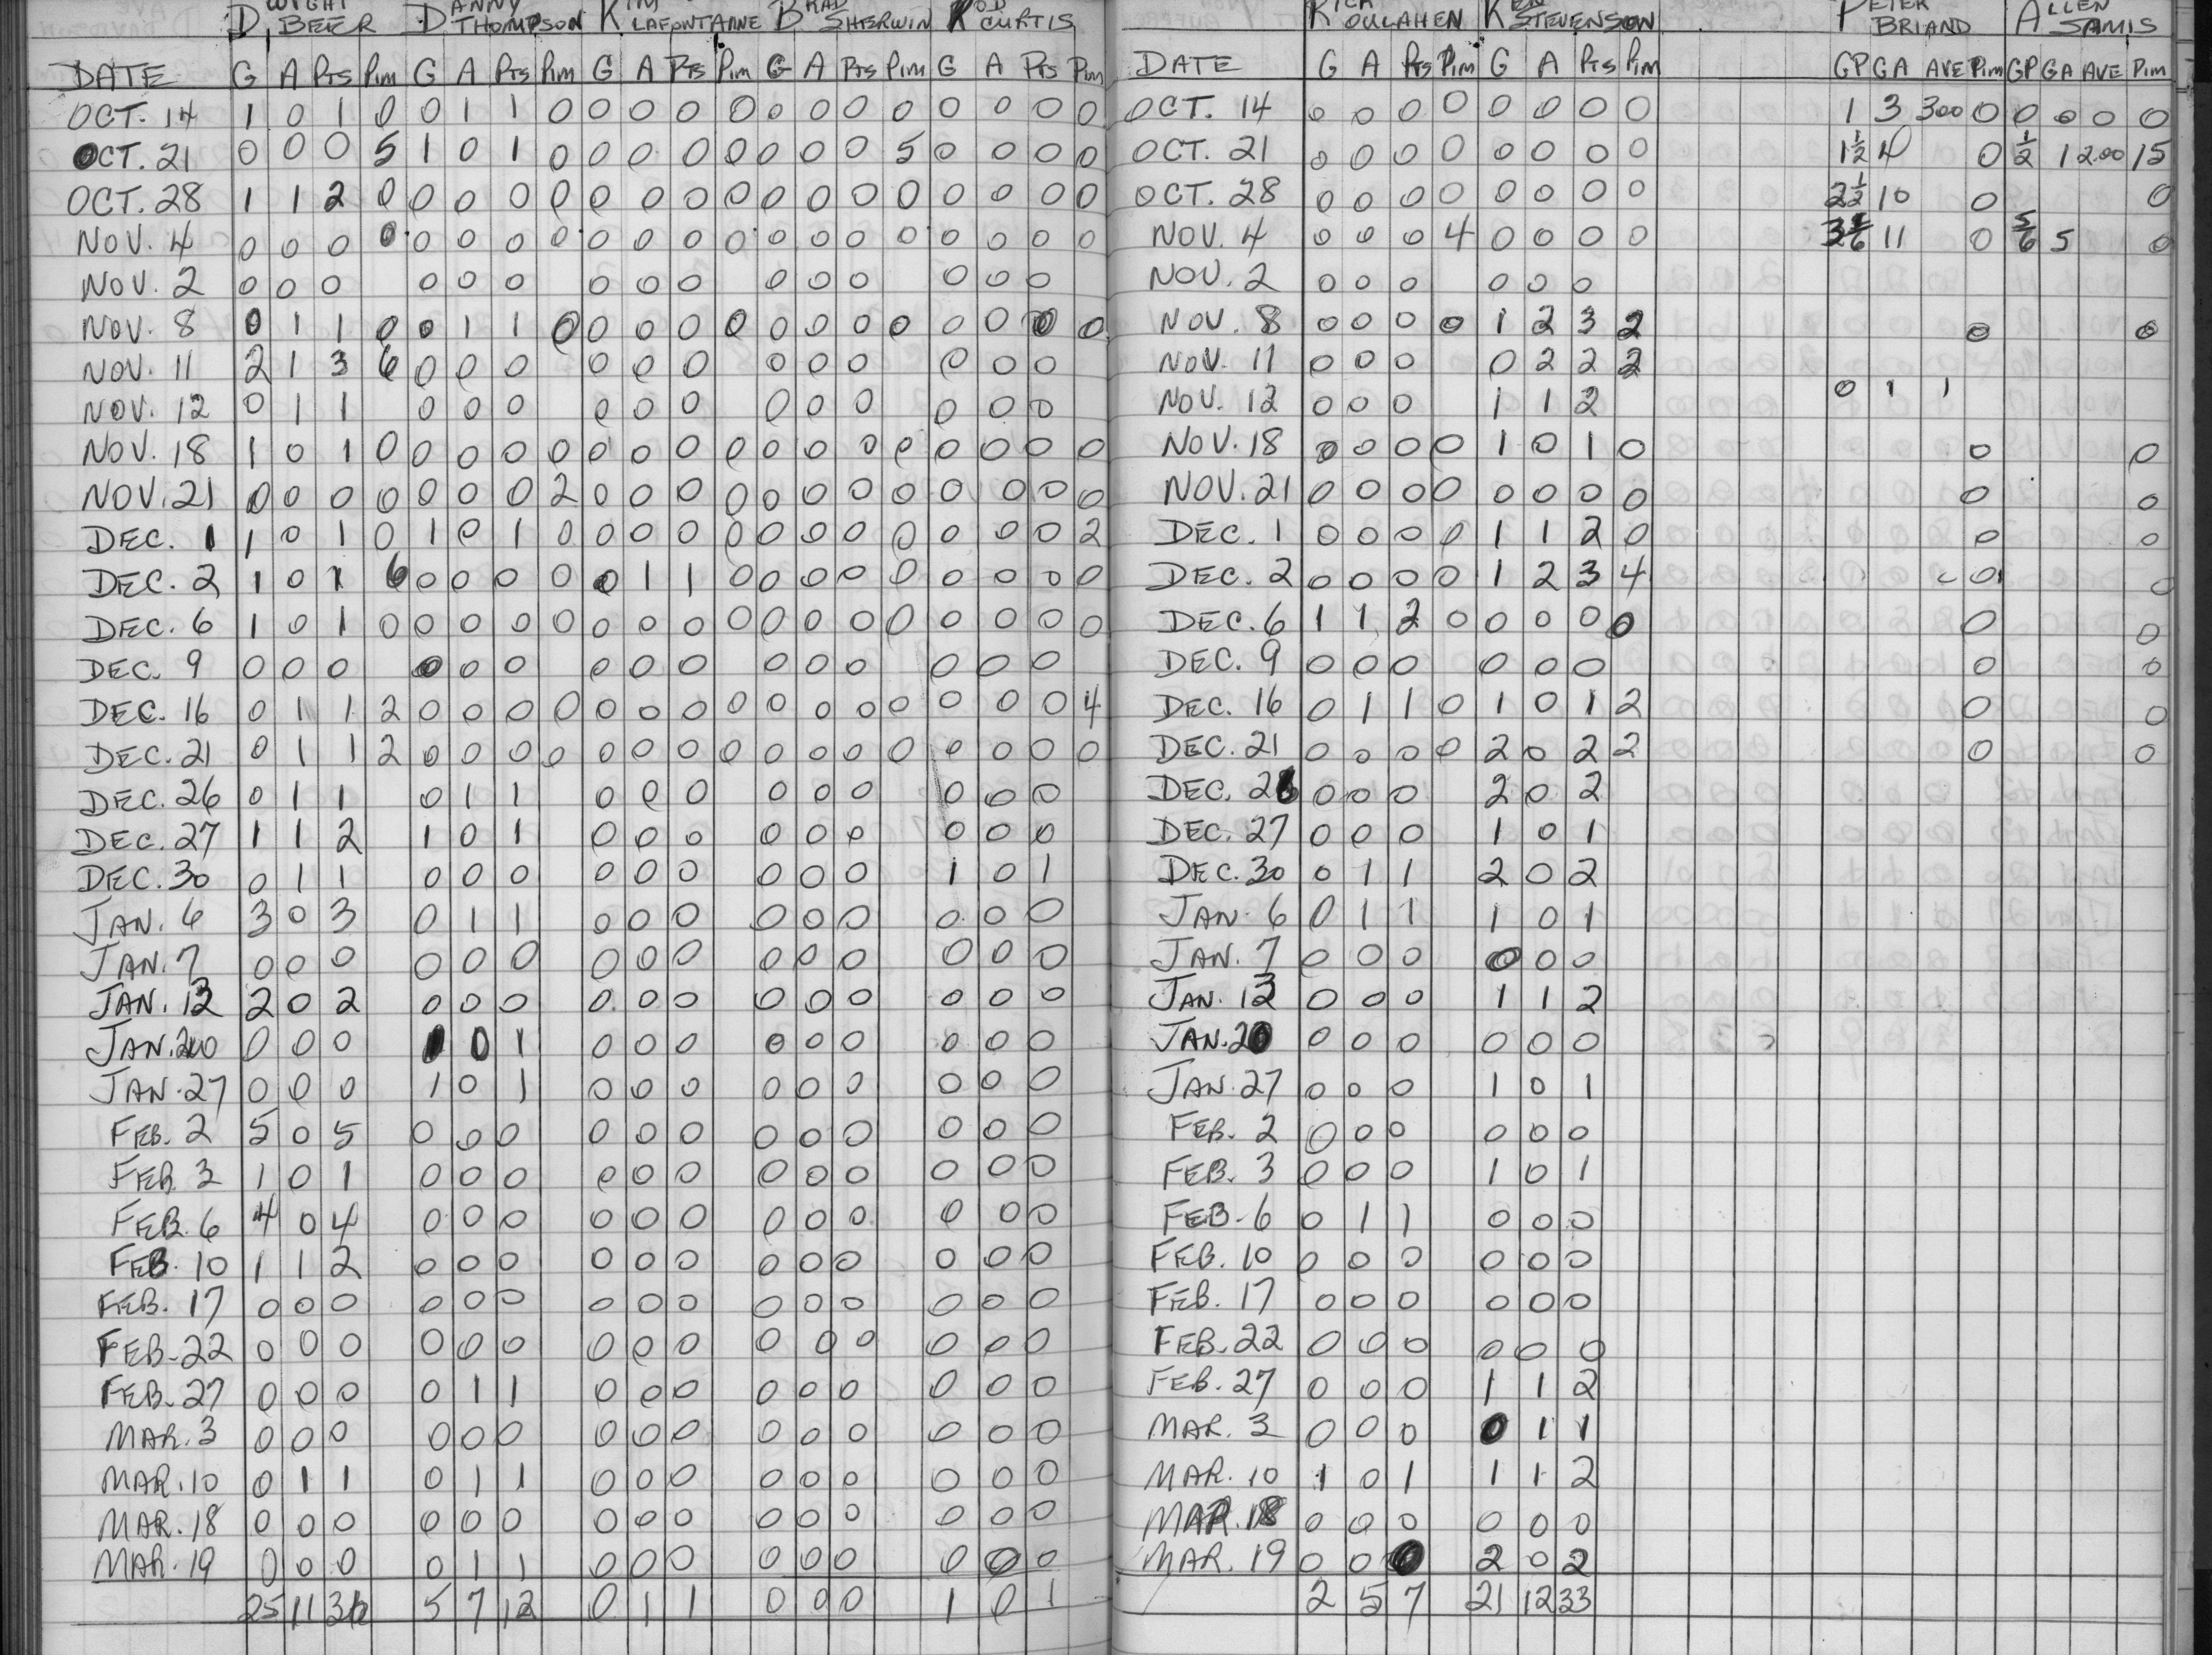 DWIGHT BEER DANNY THOMPSON KIM LAFONTAINE BRAD SHERWIN ROD CURTIS
DATE G A Pts Pim G A Pts Pim G A Pts Pim G A Pts Pim G A Pts Pim
OCT. 14 1 0 1 0 0 1 1 0 0 0 0 0 0 0 0 0 0 0 0 0
OCT. 21 0 0 0 5 1 0 1 0 0 0 0 0 0 0 0 5 0 0 0 0
OCT. 28 1 1 2 0 0 0 0 0 0 0 0 0 0 0 0 0 0 0 0 0
NOV. 4 0 0 0 0 0 0 0 0 0 0 0 0 0 0 0 0 0 0 0 0
NOV. 2 0 0 0 0 0 0 0 0 0 0 0 0 0 0 0
NOV. 8 0 1 1 0 0 1 1 0 0 0 0 0 0 0 0 0 0 0 0 0
NOV. 11 2 1 3 6 0 0 0 0 0 0 0 0 0 0 0 0
NOV. 12 0 1 1 0 0 0 0 0 0 0 0 0 0 0 0
NOV. 18 1 0 1 0 0 0 0 0 0 0 0 0 0 0 0 0 0 0 0 0
NOV. 21 0 0 0 0 0 0 0 2 0 0 0 0 0 0 0 0 0 0 0 0
DEC. 1 1 0 1 0 1 0 1 0 0 0 0 0 0 0 0 0 0 0 0 2
DEC. 2 1 0 1 6 0 0 0 0 0 1 1 0 0 0 0 0 0 0 0 0
DEC. 6 1 0 1 0 0 0 0 0 0 0 0 0 0 0 0 0 0 0 0 0
DEC. 9 0 0 0 0 0 0 0 0 0 0 0 0 0 0 0
DEC. 16 0 1 1 2 0 0 0 0 0 0 0 0 0 0 0 0 0 0 0 4
DEC. 21 0 1 1 2 0 0 0 0 0 0 0 0 0 0 0 0 0 0 0 0
DEC. 26 0 1 1 0 1 1 0 0 0 0 0 0 0 0 0
DEC. 27 1 1 2 1 0 1 0 0 0 0 0 0 0 0 0
DEC. 30 0 1 1 0 0 0 0 0 0 0 0 0 1 0 1
JAN. 6 3 0 3 0 1 1 0 0 0 0 0 0 0 0 0
JAN. 7 0 0 0 0 0 0 0 0 0 0 0 0 0 0 0
JAN. 13 2 0 2 0 0 0 0 0 0 0 0 0 0 0 0
JAN. 20 0 0 0 1 0 1 0 0 0 0 0 0 0 0 0
JAN. 27 0 0 0 1 0 1 0 0 0 0 0 0 0 0 0
FEB. 2 5 0 5 0 0 0 0 0 0 0 0 0 0 0 0
FEB. 3 1 0 1 0 0 0 0 0 0 0 0 0 0 0 0
FEB. 6 4 0 4 0 0 0 0 0 0 0 0 0 0 0 0
FEB. 10 1 1 2 0 0 0 0 0 0 0 0 0 0 0 0
FEB. 17 0 0 0 0 0 0 0 0 0 0 0 0 0 0 0
FEB. 22 0 0 0 0 0 0 0 0 0 0 0 0 0 0 0
FEB. 27 0 0 0 0 1 1 0 0 0 0 0 0 0 0 0
MAR. 3 0 0 0 0 0 0 0 0 0 0 0 0 0 0 0
MAR. 10 0 1 1 0 1 1 0 0 0 0 0 0 0 0 0
MAR. 18 0 0 0 0 0 0 0 0 0 0 0 0 0 0 0
MAR. 19 0 0 0 0 1 1 0 0 0 0 0 0 0 0 0
25 11 36 5 7 12 0 1 1 0 0 0 1 0 1
RICK OULAHEN KEN STEVENSON PETER BRIAND ALLEN SAMIS
DATE G A Pts Pim G A Pts Pim GP GA AVE Pim GP GA AVE Pim
OCT. 14 0 0 0 0 0 0 0 0 1 3 300 0 0 0 0 0
OCT. 21 0 0 0 0 0 0 0 0 1½ 4 0 ½ 1 2.00 15
OCT. 28 0 0 0 0 0 0 0 0 2½ 10 0 0
NOV. 4 0 0 0 4 0 0 0 0 11 0 5/6 5 0
NOV. 2 0 0 0 0 0 0
NOV. 8 0 0 0 0 1 2 3 2 0 0
NOV. 11 0 0 0 0 2 2 2
NOV. 12 0 0 0 1 1 2 0 1 1
NOV. 18 0 0 0 0 1 0 1 0 0 0
NOV. 21 0 0 0 0 0 0 0 0 0 0
DEC. 1 0 0 0 0 1 1 2 0 0 0
DEC. 2 0 0 0 0 1 2 3 4 0 0
DEC. 6 1 1 2 0 0 0 0 0 0 0
DEC. 9 0 0 0 0 0 0 0 0
DEC. 16 0 1 1 0 1 0 1 2 0 0
DEC. 21 0 0 0 0 2 0 2 2 0 0
DEC. 26 0 0 0 2 0 2
DEC. 27 0 0 0 1 0 1
DEC. 30 0 1 1 2 0 2
JAN. 6 0 1 1 1 0 1
JAN. 7 0 0 0 0 0 0
JAN. 13 0 0 0 1 1 2
JAN. 20 0 0 0 0 0 0
JAN. 27 0 0 0 1 0 1
FEB. 2 0 0 0 0 0 0
FEB. 3 0 0 0 1 0 1
FEB. 6 0 1 1 0 0 0
FEB. 10 0 0 0 0 0 0
FEB. 17 0 0 0 0 0 0
FEB. 22 0 0 0 0 0 0
FEB. 27 0 0 0 1 1 2
MAR. 3 0 0 0 0 1 1
MAR. 10 1 0 1 1 1 2
MAR. 18 0 0 0 0 0 0
MAR. 19 0 0 0 2 0 2
2 5 7 21 12 33